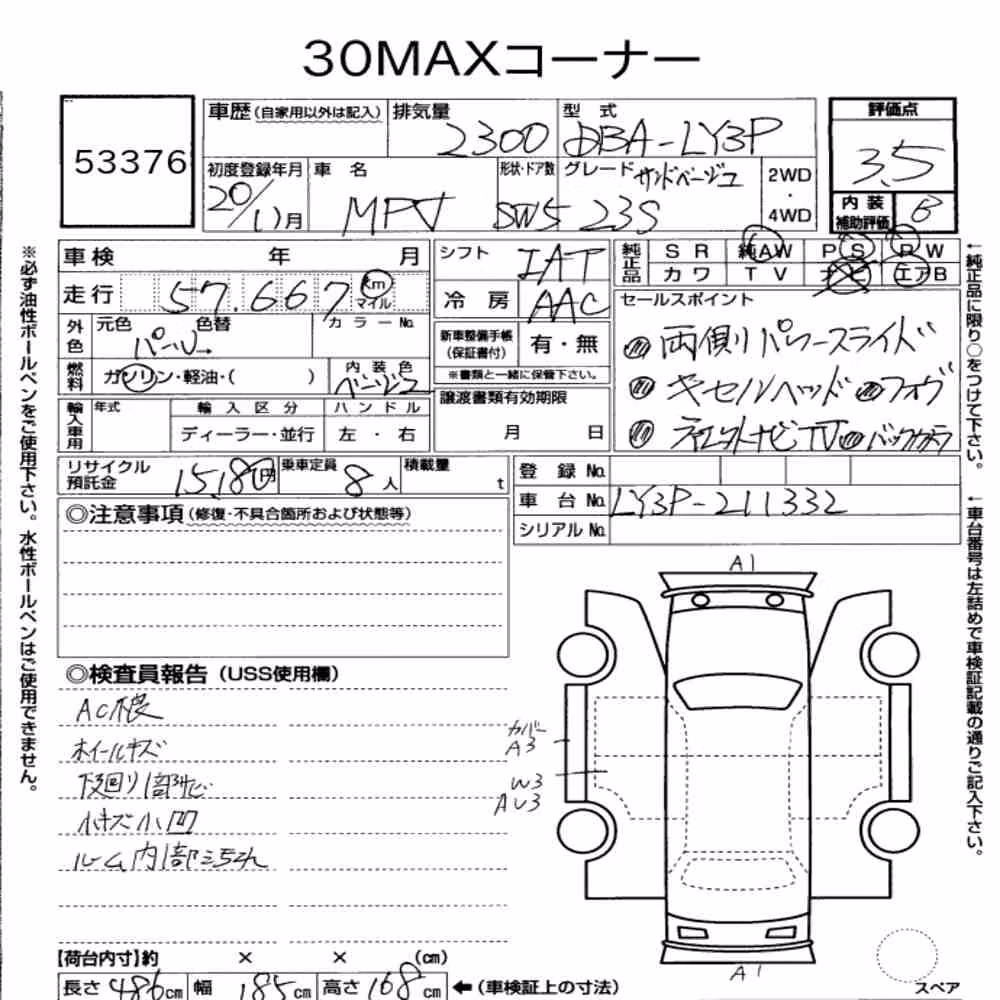 30MAXコーナー
53376
車歴(自家用以外は記入)
排気量 2300
型 式 DBA-LY3P
評価点 3.5
初度登録年月 20/11月
車 名 MPV
形状・ドア数 SW5
グレード サンドベージュ 23S
2WD
・
4WD
内 装
補助評価 B
車検 年 月
シフト IAT
純正品 S R 純AW P S R W
カ ワ T V ナビ エアB
走行 57.667 km
マイル
冷 房 AAC
セールスポイント
外色 元色 パール 色替 カラーNo.
新車整備手帳
(保証書付) 有・無
※書類と一緒に保管下さい。
両側リパワースライド
燃料 ガソリン・軽油・( ) 内 装 色 ベージュ
キセルヘッド フォグ
輸入車用 年式 輸 入 区 分 ハ ン ド ル
ディーラー・並行 左 ・ 右
譲渡書類有効期限
月 日
ナビTV バックカメラ
リサイクル
預託金 15,180円
乗車定員 8人
積載量 t
登 録 No.
車 台 No. LY3P-211332
シリアル No.
◎注意事項(修復・不具合箇所および状態等)
◎検査員報告(USS使用欄)
AC不良
ホイールキズ
下廻り1部サビ
小キズ小凹
ルーム内1部
A1
カバー
A3
W3
AU3
A1
スペア
【荷台内寸】約 × × (cm)
長さ 486cm 幅 185cm 高さ 168cm ←(車検証上の寸法)
※必ず油性ボールペンをご使用下さい。水性ボールペンはご使用できません。
←純正品に限り○をつけて下さい。
←車台番号は左詰めで車検証記載の通りご記入下さい。